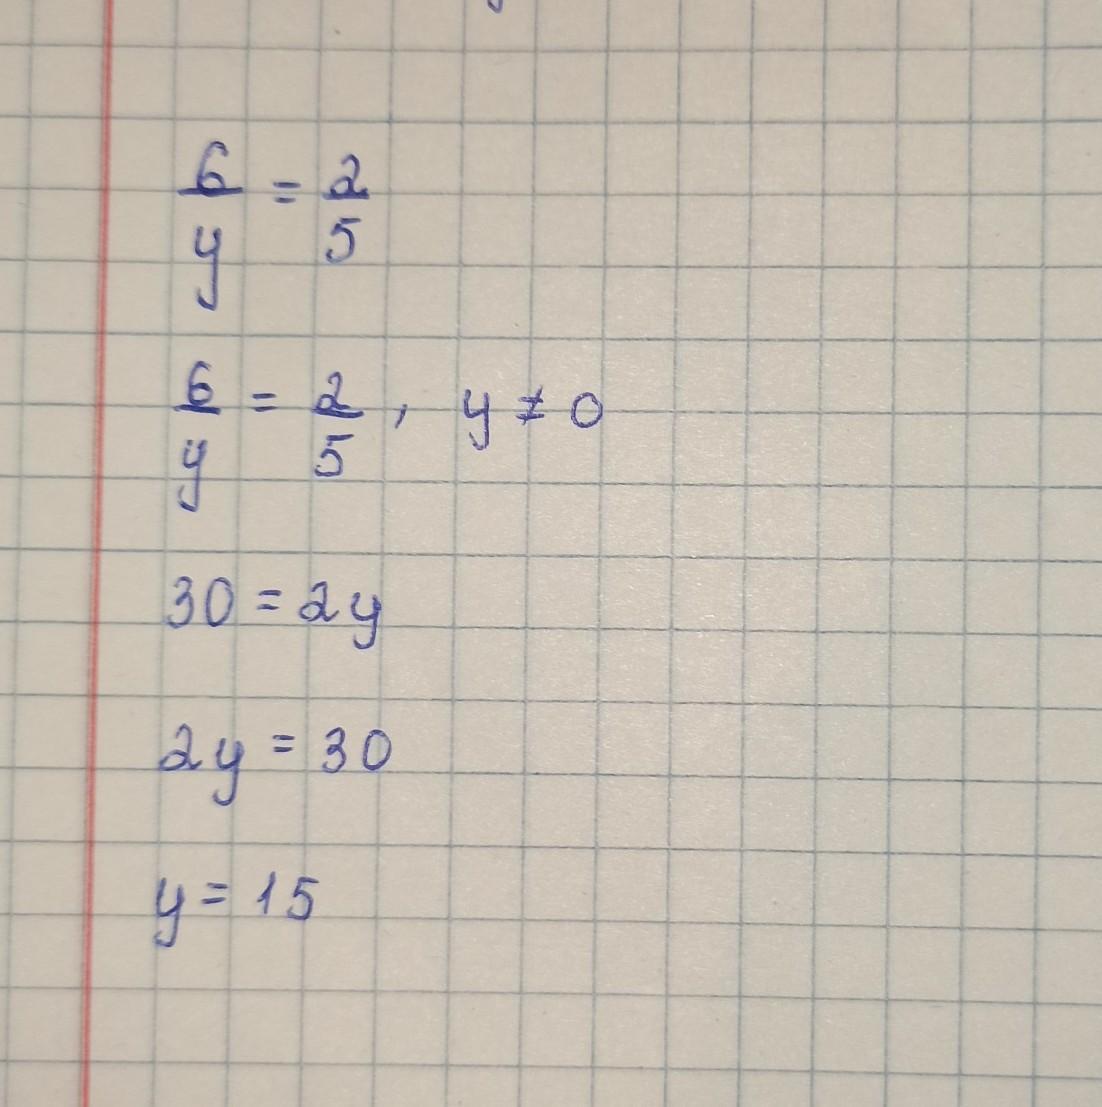 6/y = 2/5
6/y = 2/5, y ≠ 0
30 = 2y
2y = 30
y = 15